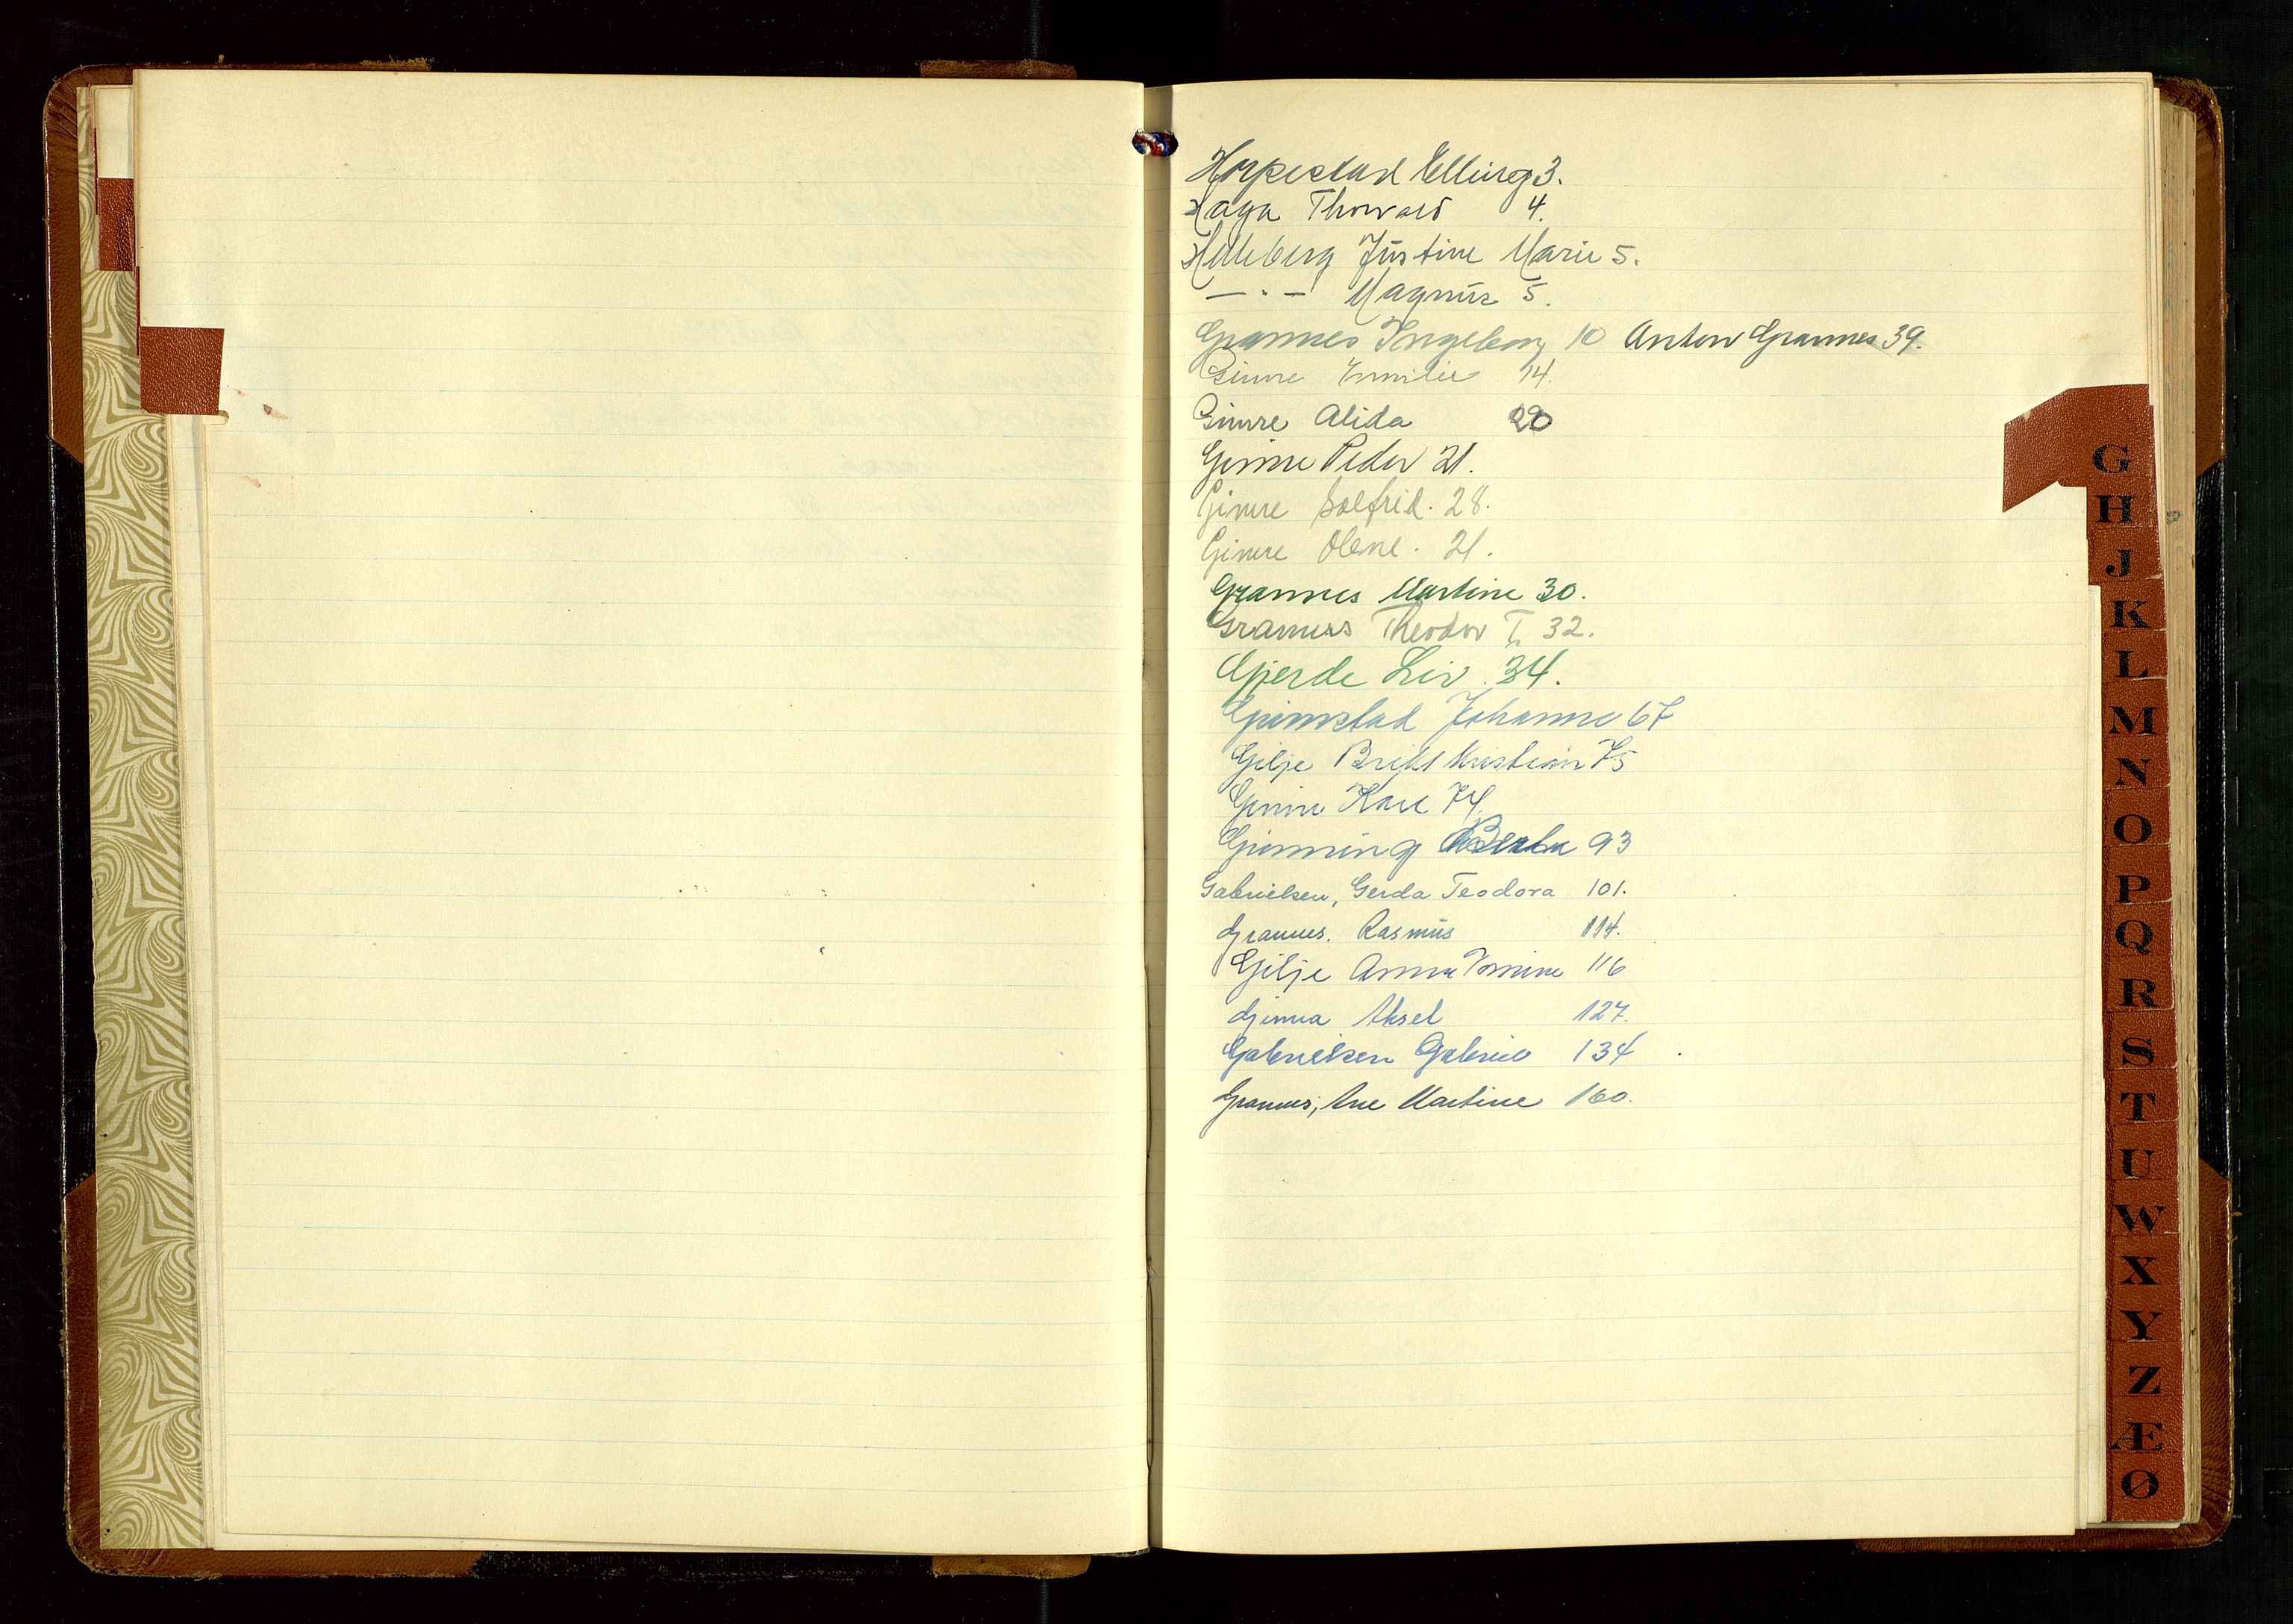 Horpestad Elling 3.
Haga Thorvald 4.
Helleberg Justine Marie 5.
— " — Magnus 5.
Grannes Ingeborg 10 Anton Grannes 39.
Gimre Emilie 14.
Gimre Alida 20
Gimre Peder 21.
Gimre Solfrid. 28.
Gimre Olene. 21.
Grannes Martine 30.
Grannes Theodor T. 32.
Gjerde Liv. 34.
Grimstad Johanne 67
Gilje Kristian 75
Gimre Kare 74.
Grinning Berta 93
Gabrielsen, Gerda Teodora 101.
Grannes. Rasmus 114.
Gilje Anna 116
Gimra Aksel 127.
Gabrielsen Gabriel 134
Grannes, Ane Martine 160.
G
H
J
K
L
M
N
O
P
Q
R
S
T
U
W
X
Y
Z
Æ
Ø